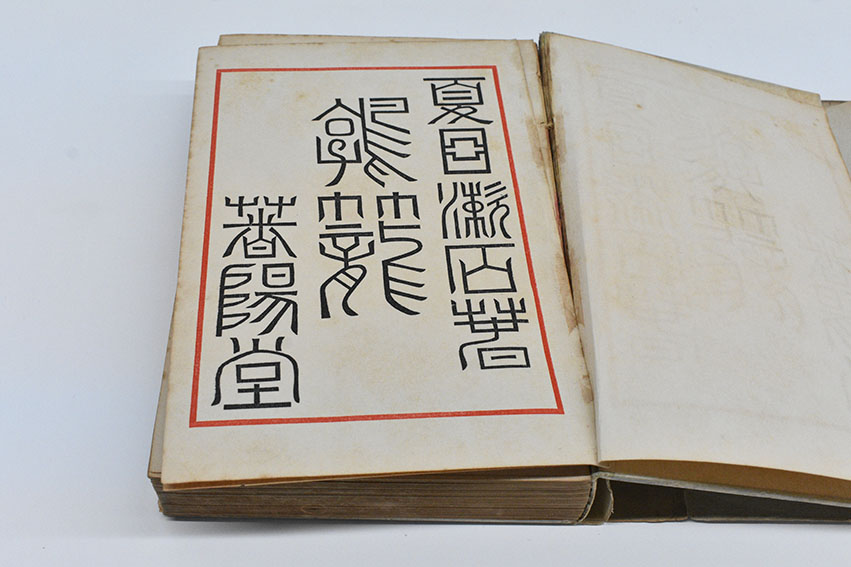 夏目漱石著
鶉籠
春陽堂